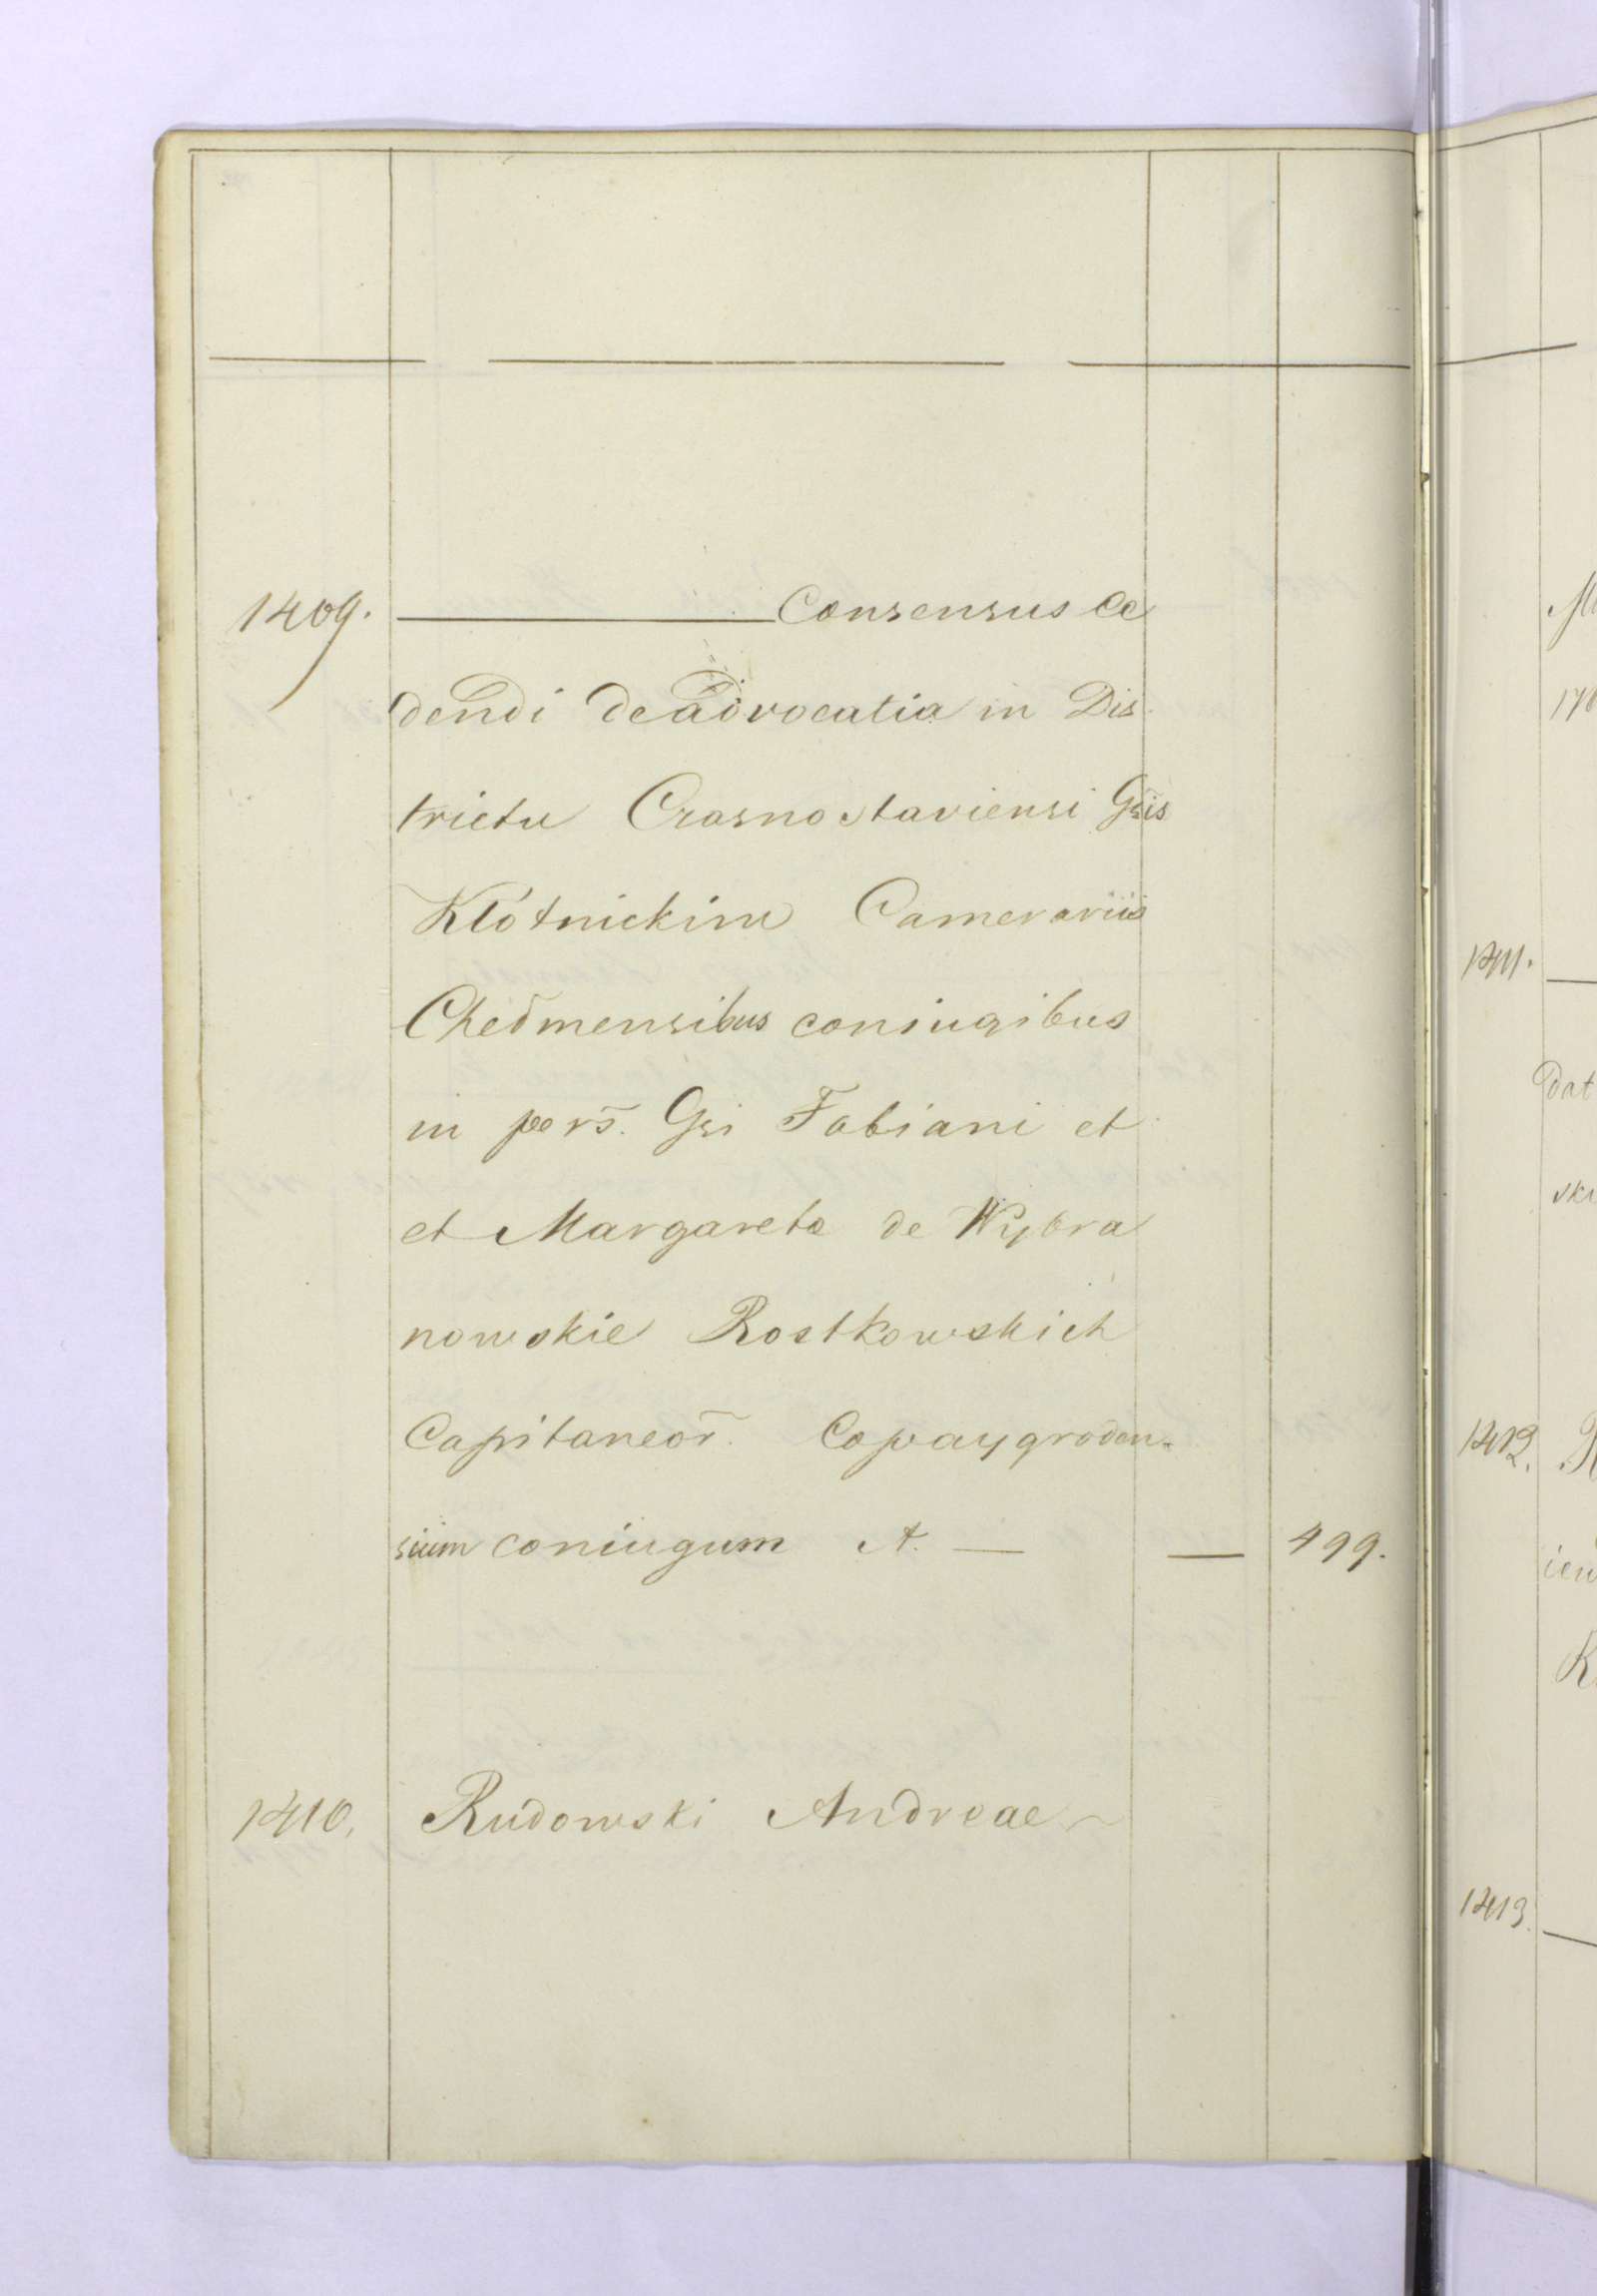 1409. Consensus Ce
dendi de advocatia in Dis
trictu Crasnostaviensi Gsis
Kłótnickim Camerariis
Chełmensibus coniugibus
in pers. Gsi Fabiani et
et Margareta de Wybra
nowskie Rostkowskich
Capitaneor. Copaygroden-
sium coniugum A. — — 499.
1410. Rudowski Andreae
1411.
dat
1412.
1413.